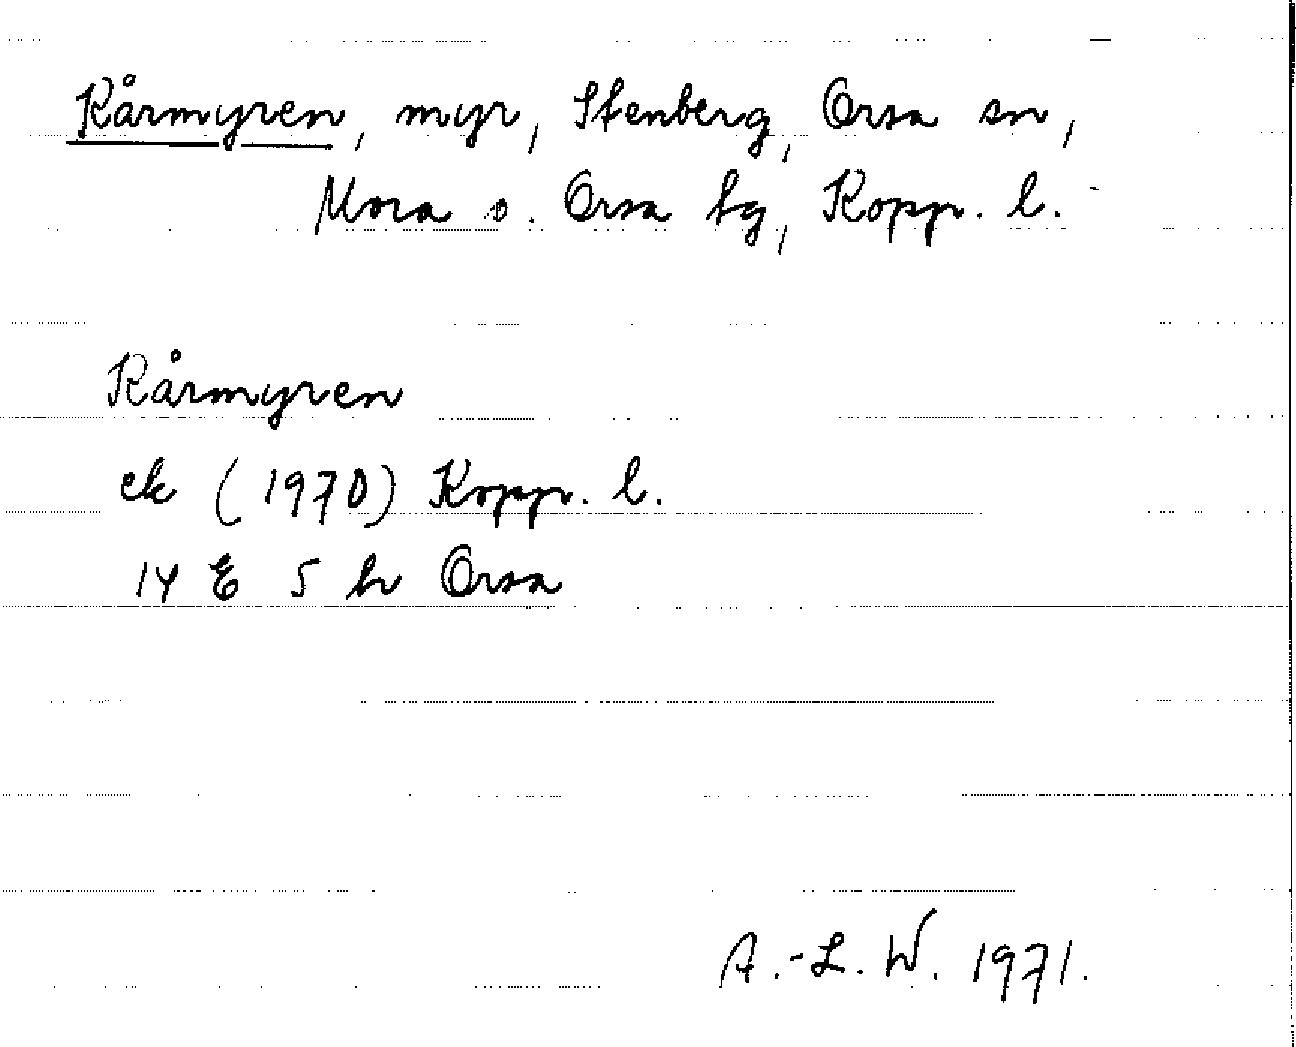 Kårmyren, myr, Stenberg, Orsa sn,
Mora o. Orsa tg, Kopp. l.
Kårmyren
ek (1970) Kopp. l.
14 E 5 h Orsa
A.-L. W. 1971.